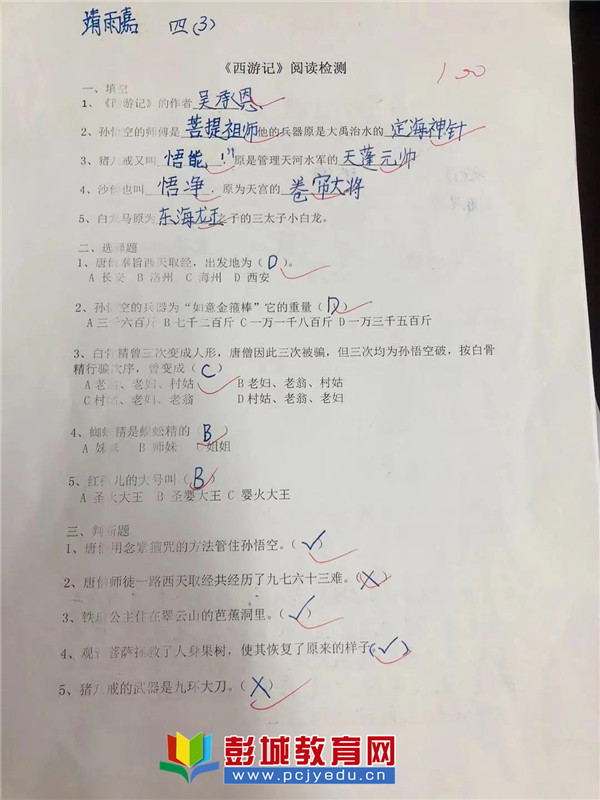 靖雨嘉 四(3)
《西游记》阅读检测
100
一、填空
1、《西游记》的作者吴承恩
2、孙悟空的师傅是菩提祖师他的兵器原是大禹治水的定海神针
3、猪八戒又叫悟能,原是管理天河水军的天蓬元帅
4、沙僧也叫悟净,原为天宫的卷帘大将
5、白龙马原为东海龙王之子的三太子小白龙。
二、选择题
1、唐僧奉旨西天取经,出发地为(D)。
A 长安 B 洛州 C 海州 D 西安
2、孙悟空的兵器为“如意金箍棒”它的重量(D)
A 三千六百斤 B 七千二百斤 C 一万一千八百斤 D 一万三千五百斤
3、白骨精曾三次变成人形,唐僧因此三次被骗,但三次均为孙悟空破,按白骨
精行骗次序,曾变成(C)
A 老翁、老妇、村姑 B 老妇、老翁、村姑
C 村姑、老妇、老翁 D 村姑、老翁、老妇
4、蜘蛛精是蜈蚣精的(B)
A 妹妹 B 师妹 C 姐姐
5、红孩儿的大号叫(B)
A 圣火大王 B 圣婴大王 C 婴火大王
三、判断题
1、唐僧用念紧箍咒的方法管住孙悟空。(√)
2、唐僧师徒一路西天取经共经历了九七六十三难。(×)
3、铁扇公主住在翠云山的芭蕉洞里。(√)
4、观音菩萨拯救了人身果树,使其恢复了原来的样子(√)
5、猪八戒的武器是九环大刀。(×)
彭城教育网
www.pcjyedu.cn